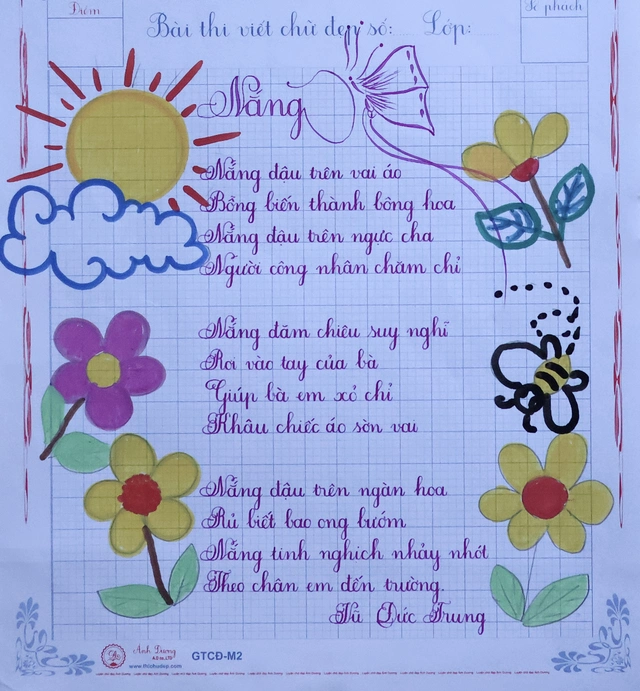 Điểm
Bài thi viết chữ đẹp số: Lớp:
Số phách
Nắng
Nắng đậu trên vai áo
Bỗng biến thành bông hoa
Nắng đậu trên ngực cha
Người công nhân chăm chỉ
Nắng đăm chiêu suy nghĩ
Rơi vào tay của bà
Giúp bà em xỏ chỉ
Khâu chiếc áo sờn vai
Nắng đậu trên ngàn hoa
Rủ biết bao ong bướm
Nắng tinh nghịch nhảy nhót
Theo chân em đến trường.
Vũ Đức Trung
Ánh Dương
GTCĐ-M2